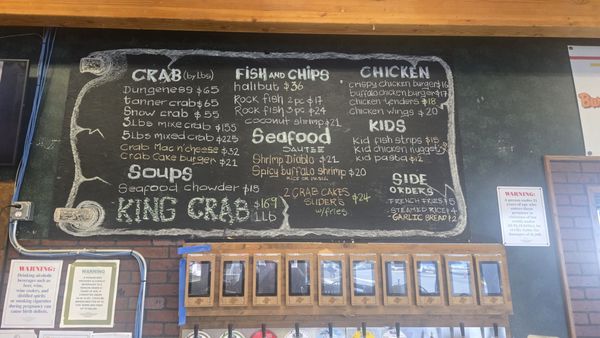 CRAB (by Lbs)
Dungeness $65
tanner crab $65
Snow crab $55
3 Lbs mike crab $155
5 Lbs mixed crab $225
Crab Mac n'cheese $32
Crab Cake burger $21
Soups
Seafood chowder $15
KING CRAB $169
1 Lb
FISH AND CHIPS
halibut $36
Rock fish 2pc $17
Rock fish 3pc $24
coconut shrimp $21
Seafood
SAUTEE
Shrimp Diablo $21
Spicy buffalo shrimp $20
RICE OR PASTA
2 CRAB CAKES
SLIDER'S $24
w/fries
CHICKEN
crispy chicken burger $16
buffalo chicken burger $17
chicken tenders $18
chicken wings $20
KIDS
Kid fish strips $15
Kid chicken nugget
Kid pasta $12
SIDE
ORDERS
FRENCH FRIES $5
STEAMED RICE $4
GARLIC BREAD $2
WARNING:
Drinking alcoholic
beverages such as
beer, wine,
wine coolers,
and distilled spirits
or smoking cigarettes
during pregnancy can
cause birth defects.
WARNING
WARNING: